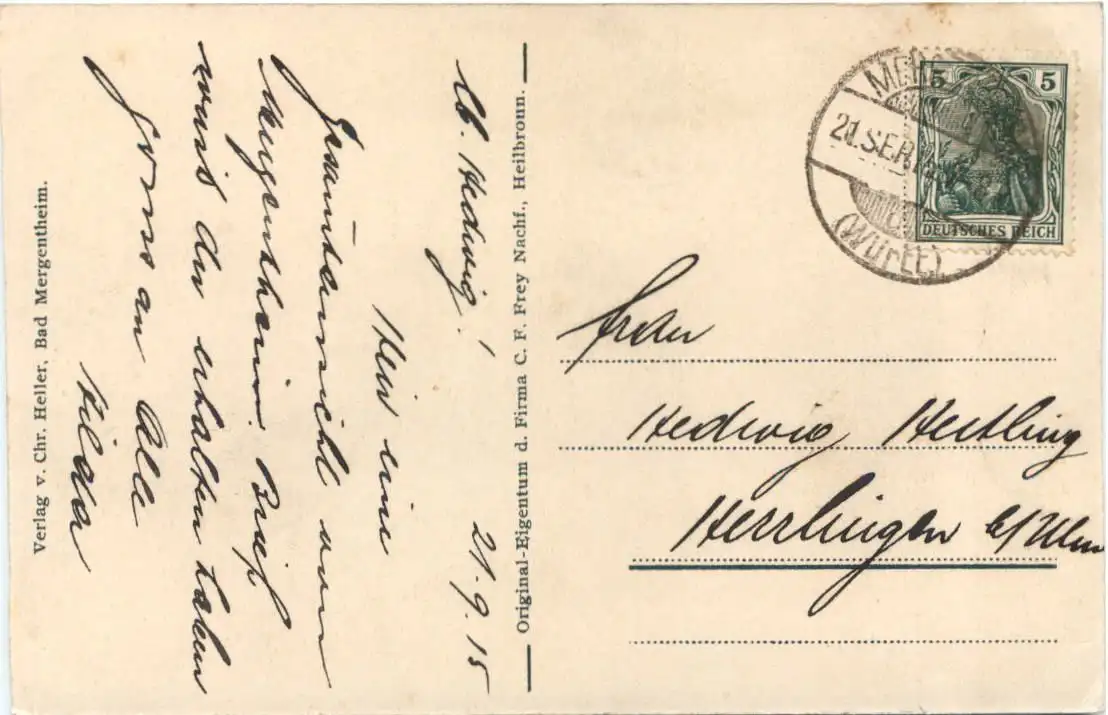 lb. Hedwig! 21.9.15
Hier eine
Gesamtansicht von
Mergentheim. Brief
wirst du erhalten haben
Gruss an Alle
Hilda
Verlag v. Chr. Heller, Bad Mergentheim.
Original-Eigentum d. Firma C. F. Frey Nachf., Heilbronn.
5 5
DEUTSCHES REICH
21.SEP.
(Württ)
Frau
Hedwig Hertling
Herrlingen b/Ulm